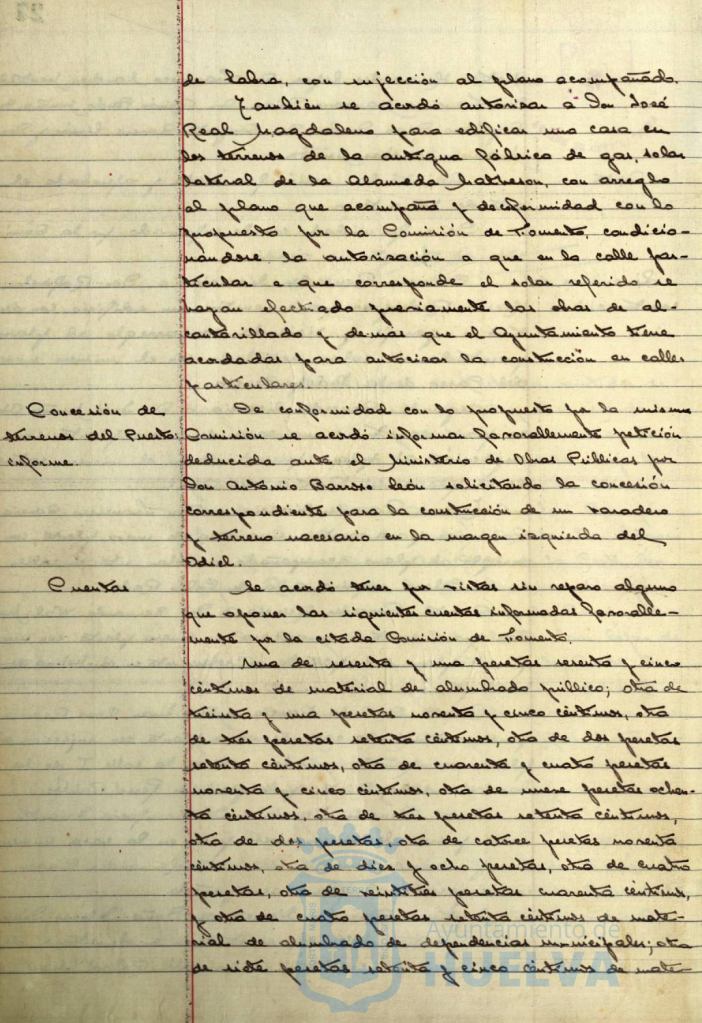 de Labra, con sujección al plano acompañado.
También se acordó autorizar á Don José
Real Magdaleno para edificar una casa en
los terrenos de la antigua fábrica de gas, solar
lateral de la Alameda Matheson, con arreglo
al plano que acompaña y deconformidad con lo
propuesto por la Comisión de Fomento, condicio-
nándose la autorización a que en la calle par-
ticular a que corresponde el solar referido se
hayan efectuado previamente las obras de al-
cantarillado y demás que el Ayuntamiento tiene
acordadas para autorizar la construcción en calles
particulares.
Concesión de
terrenos del Puerto:
informe.
De conformidad con lo propuesto por la misma
Comisión se acordó informar favorablemente petición
deducida ante el Ministerio de Obras Públicas por
Don Antonio Barroso León solicitando la concesión
correspondiente para la construcción de un varadero
y terreno necesario en la margen izquierda del
Odiel.
Cuentas
Se acordó tener por vistas sin reparo alguno
que oponer las siguientes cuentas informadas favorable-
mente por la citada Comisión de Fomento.
Una de sesenta y una pesetas sesenta y cinco
céntimos de material de alumbrado público; otra de
treinta y una pesetas noventa y cinco céntimos, otra
de tres pesetas setenta céntimos, otra de dos pesetas
setenta céntimos, otra de cuarenta y cuatro pesetas
noventa y cinco céntimos, otra de nueve pesetas ochen-
ta céntimos, otra de tres pesetas setenta céntimos,
otra de dos pesetas, otra de catorce pesetas noventa
céntimos, otra de diez y ocho pesetas, otra de cuatro
pesetas, otra de veintitres pesetas cuarenta céntimos,
y otra de cuatro pesetas setenta céntimos de mate-
rial de alumbrado de dependencias municipales; otra
de siete pesetas setenta y cinco céntimos de mate-
Ayuntamiento de
HUELVA